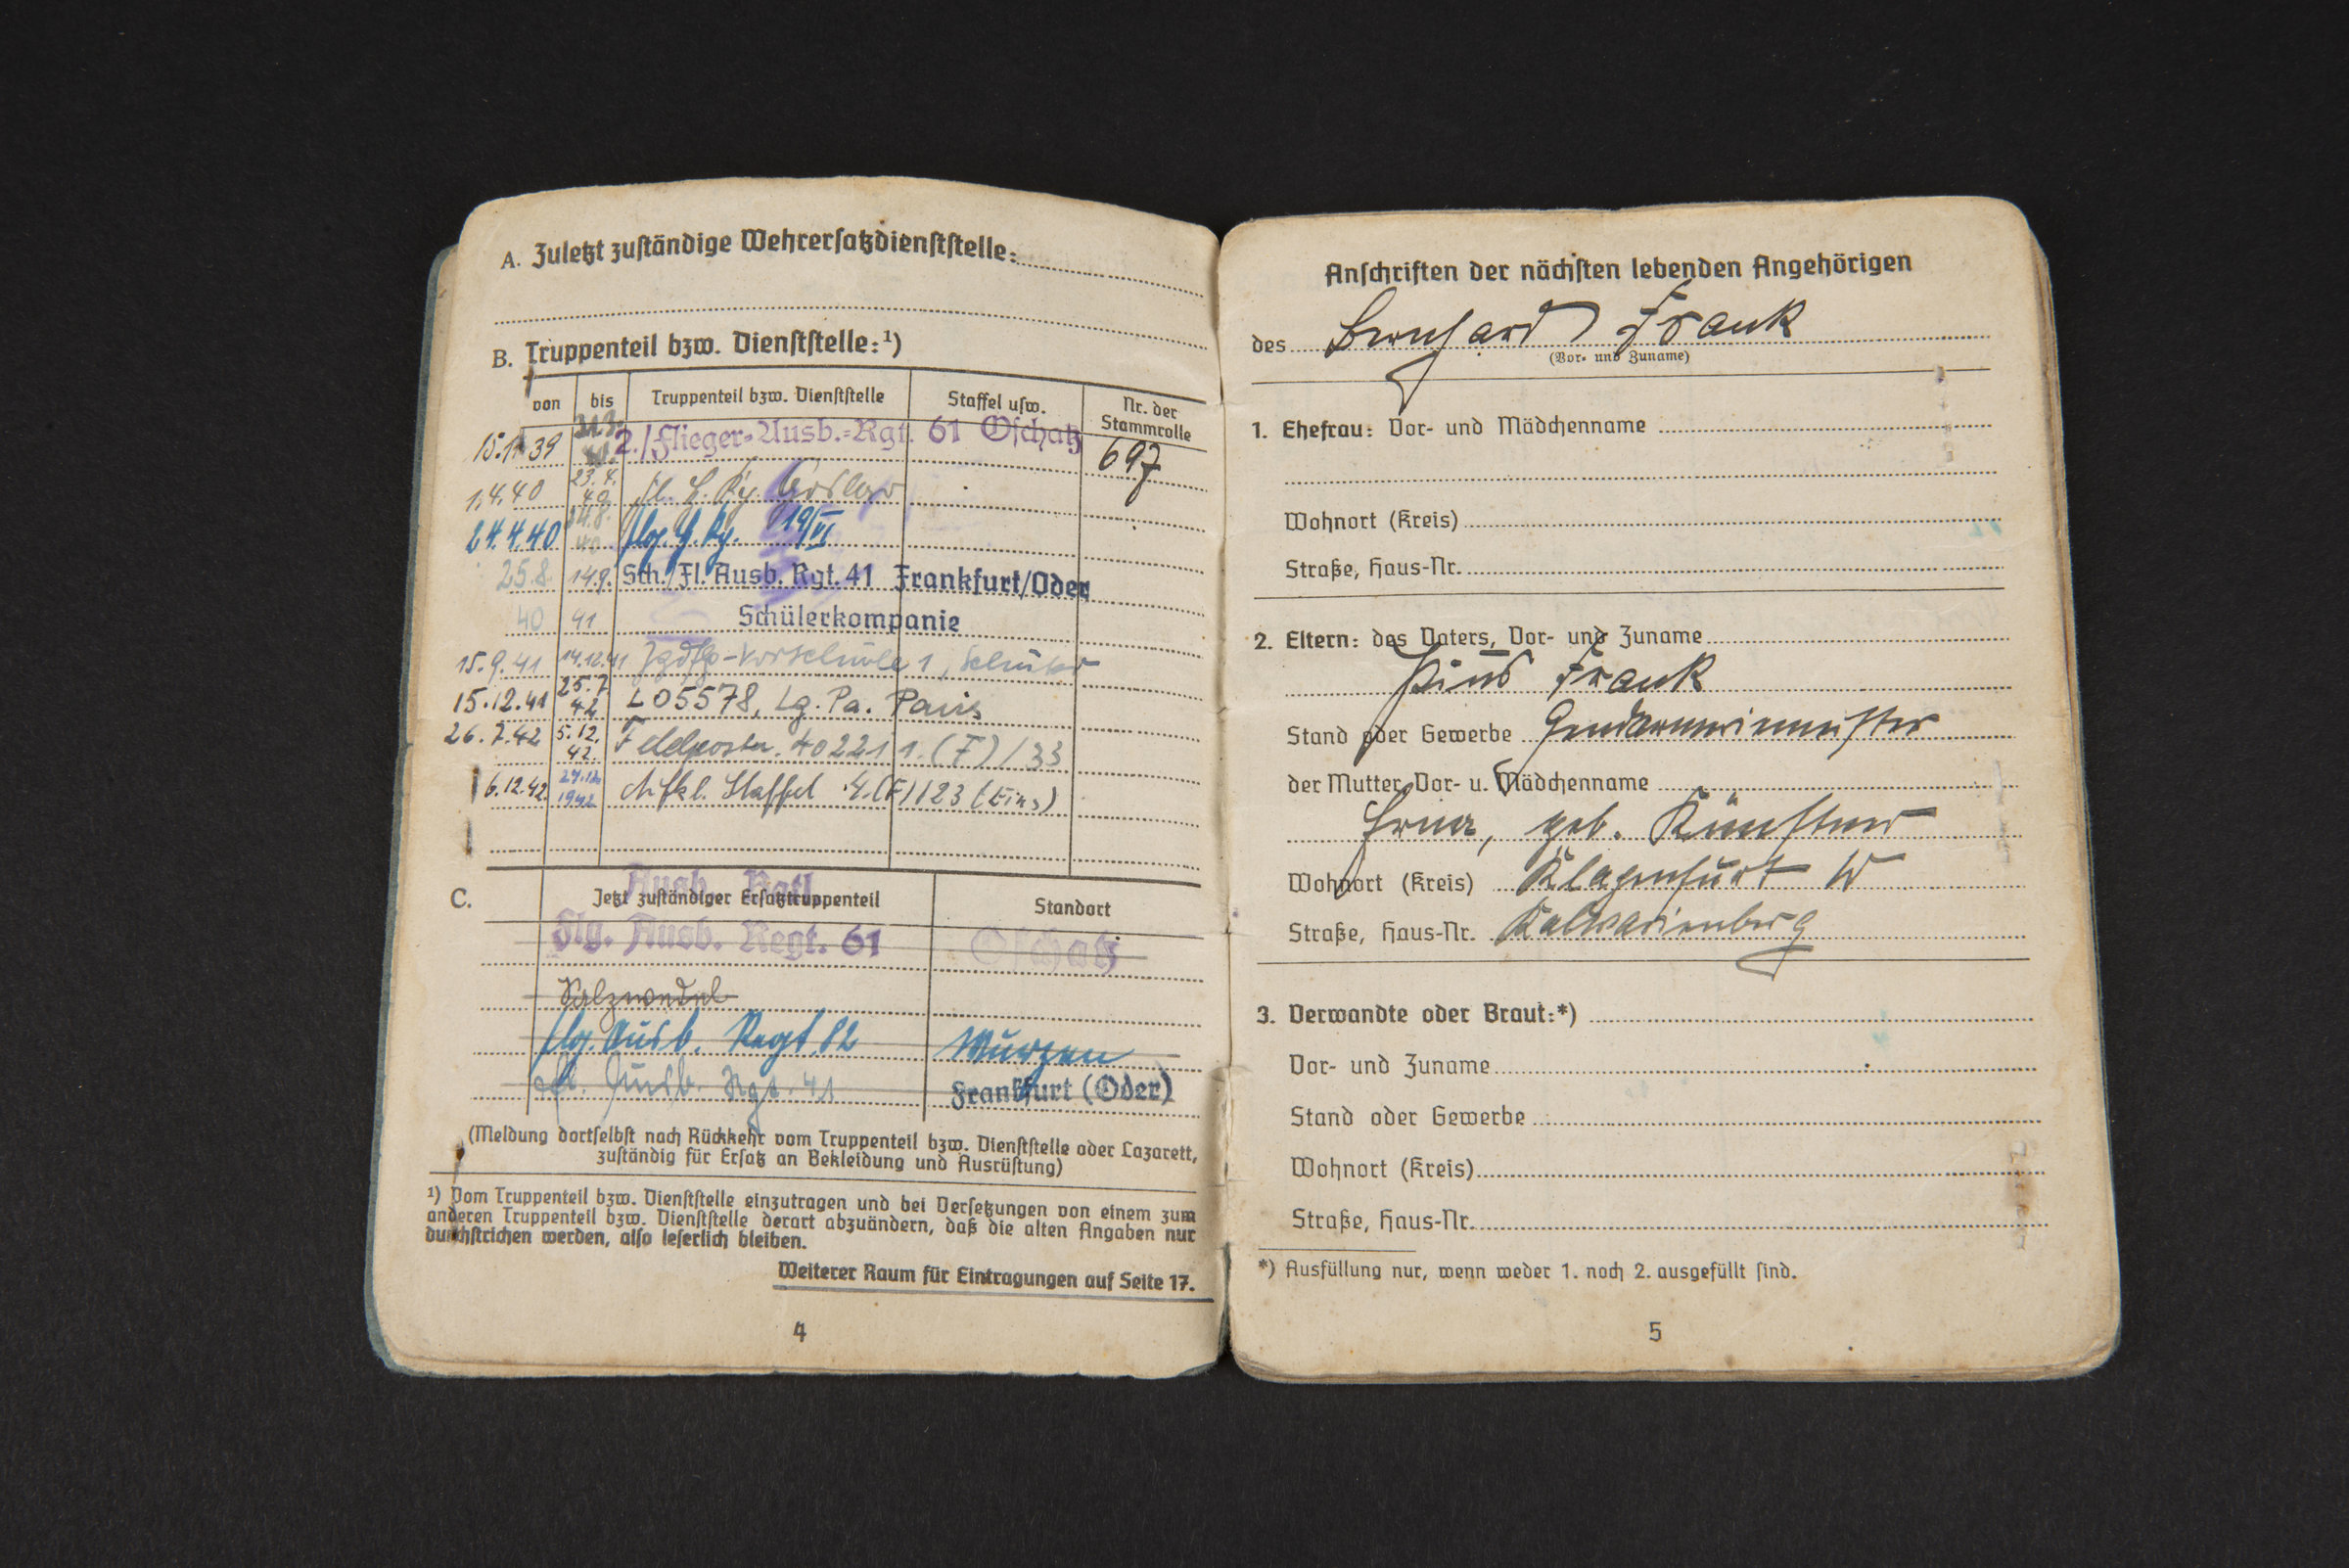 A. Zuletzt zuständige Wehrersatzdienststelle:
B. Truppenteil bzw. Dienststelle:¹)
von bis Truppenteil bzw. Dienststelle Staffel usw. Nr. der Stammrolle
15.11.39 31.3. 40. 2./Flieger-Ausb.-Rgt. 61 Oschatz 697
1.4.40 23.4. 40 Goslar
24.4.40 24.8. 40 19/VI
25.8. 14.9. Sch./Fl. Ausb. Rgt. 41 Frankfurt/Oder
40 41 Schülerkompanie
15.9.41 14.12.41 -Vorschule 1, Schüler
15.12.41 25.7. 42 L05578, Lg. Pa. Paris
26.7.42 5.12. 42. Feldpostn. 40221 1.(F)/33
6.12.42 1942 Aufkl. Staffel 4.(F)/23 (Eins)
C. Jetzt zuständiger Ersatztruppenteil Standort
Ausb. Batl.
Flg. Ausb. Regt. 61 Oschatz
Salzwedel
Flg. Ausb. Regt. 82 Wurzen
Fl. Ausb. Rgt. 41 Frankfurt (Oder)
(Meldung dortselbst nach Rückkehr vom Truppenteil bzw. Dienststelle oder Lazarett,
zuständig für Ersatz an Bekleidung und Ausrüstung)
¹) Vom Truppenteil bzw. Dienststelle einzutragen und bei Versetzungen von einem zum
anderen Truppenteil bzw. Dienststelle derart abzuändern, daß die alten Angaben nur
durchstrichen werden, also leserlich bleiben.
Weiterer Raum für Eintragungen auf Seite 17.
4
Anschriften der nächsten lebenden Angehörigen
des Bernhard Frank
(Vor- und Zuname)
1. Ehefrau: Vor- und Mädchenname
Wohnort (Kreis)
Straße, Haus-Nr.
2. Eltern: des Vaters, Vor- und Zuname
Pius Frank
Stand oder Gewerbe Gendarmeriemeister
der Mutter Vor- u. Mädchenname
Erna, geb. Künstner
Wohnort (Kreis) Klagenfurt W
Straße, Haus-Nr. Kalvarienberg
3. Verwandte oder Braut:*)
Vor- und Zuname
Stand oder Gewerbe
Wohnort (Kreis)
Straße, Haus-Nr.
*) Ausfüllung nur, wenn weder 1. noch 2. ausgefüllt sind.
5